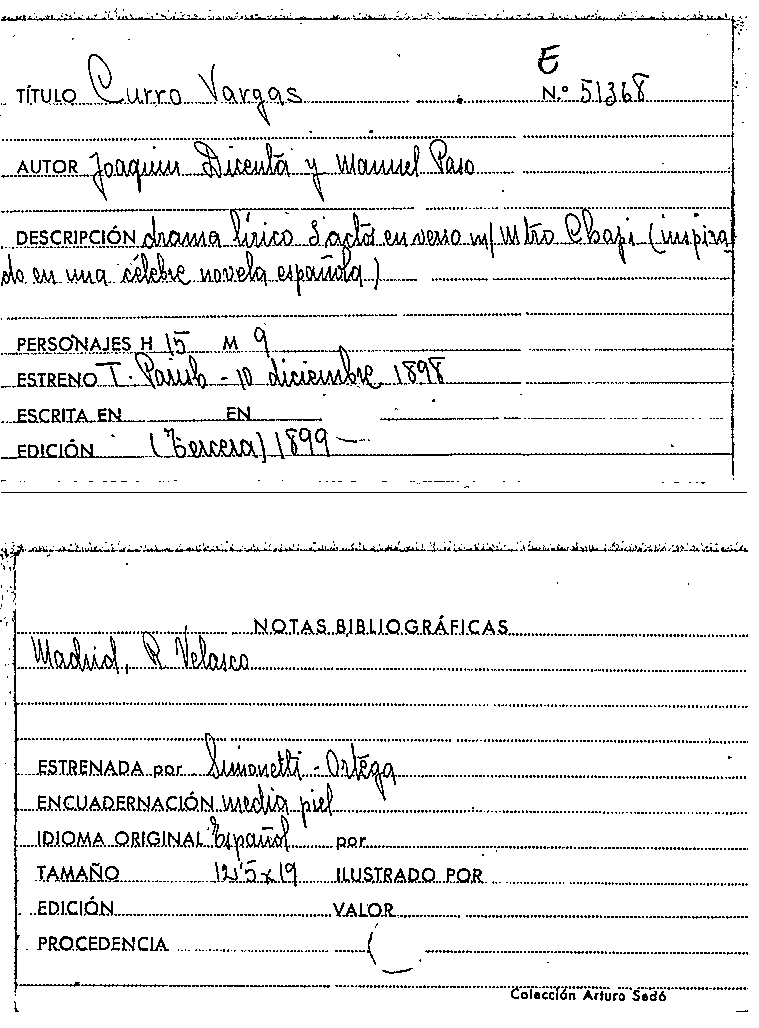 E
TÍTULO Curro Vargas N.º 51368
AUTOR Joaquin Dicenta y Manuel Paso
DESCRIPCIÓN drama lírico 3 actos en verso m/ Mtro Chapi (inspira
do en una célebre novela española)
PERSONAJES H 15 M 9
ESTRENO T. Parish - 10 diciembre 1898
ESCRITA EN EN
EDICIÓN (Tercera) 1899 —
NOTAS BIBLIOGRÁFICAS
Madrid, R Velasco
ESTRENADA por Simonetti - Ortega
ENCUADERNACIÓN media piel
IDIOMA ORIGINAL Español por
TAMAÑO 12'5 x 19 ILUSTRADO POR
EDICIÓN VALOR
PROCEDENCIA
Colección Arturo Sedó